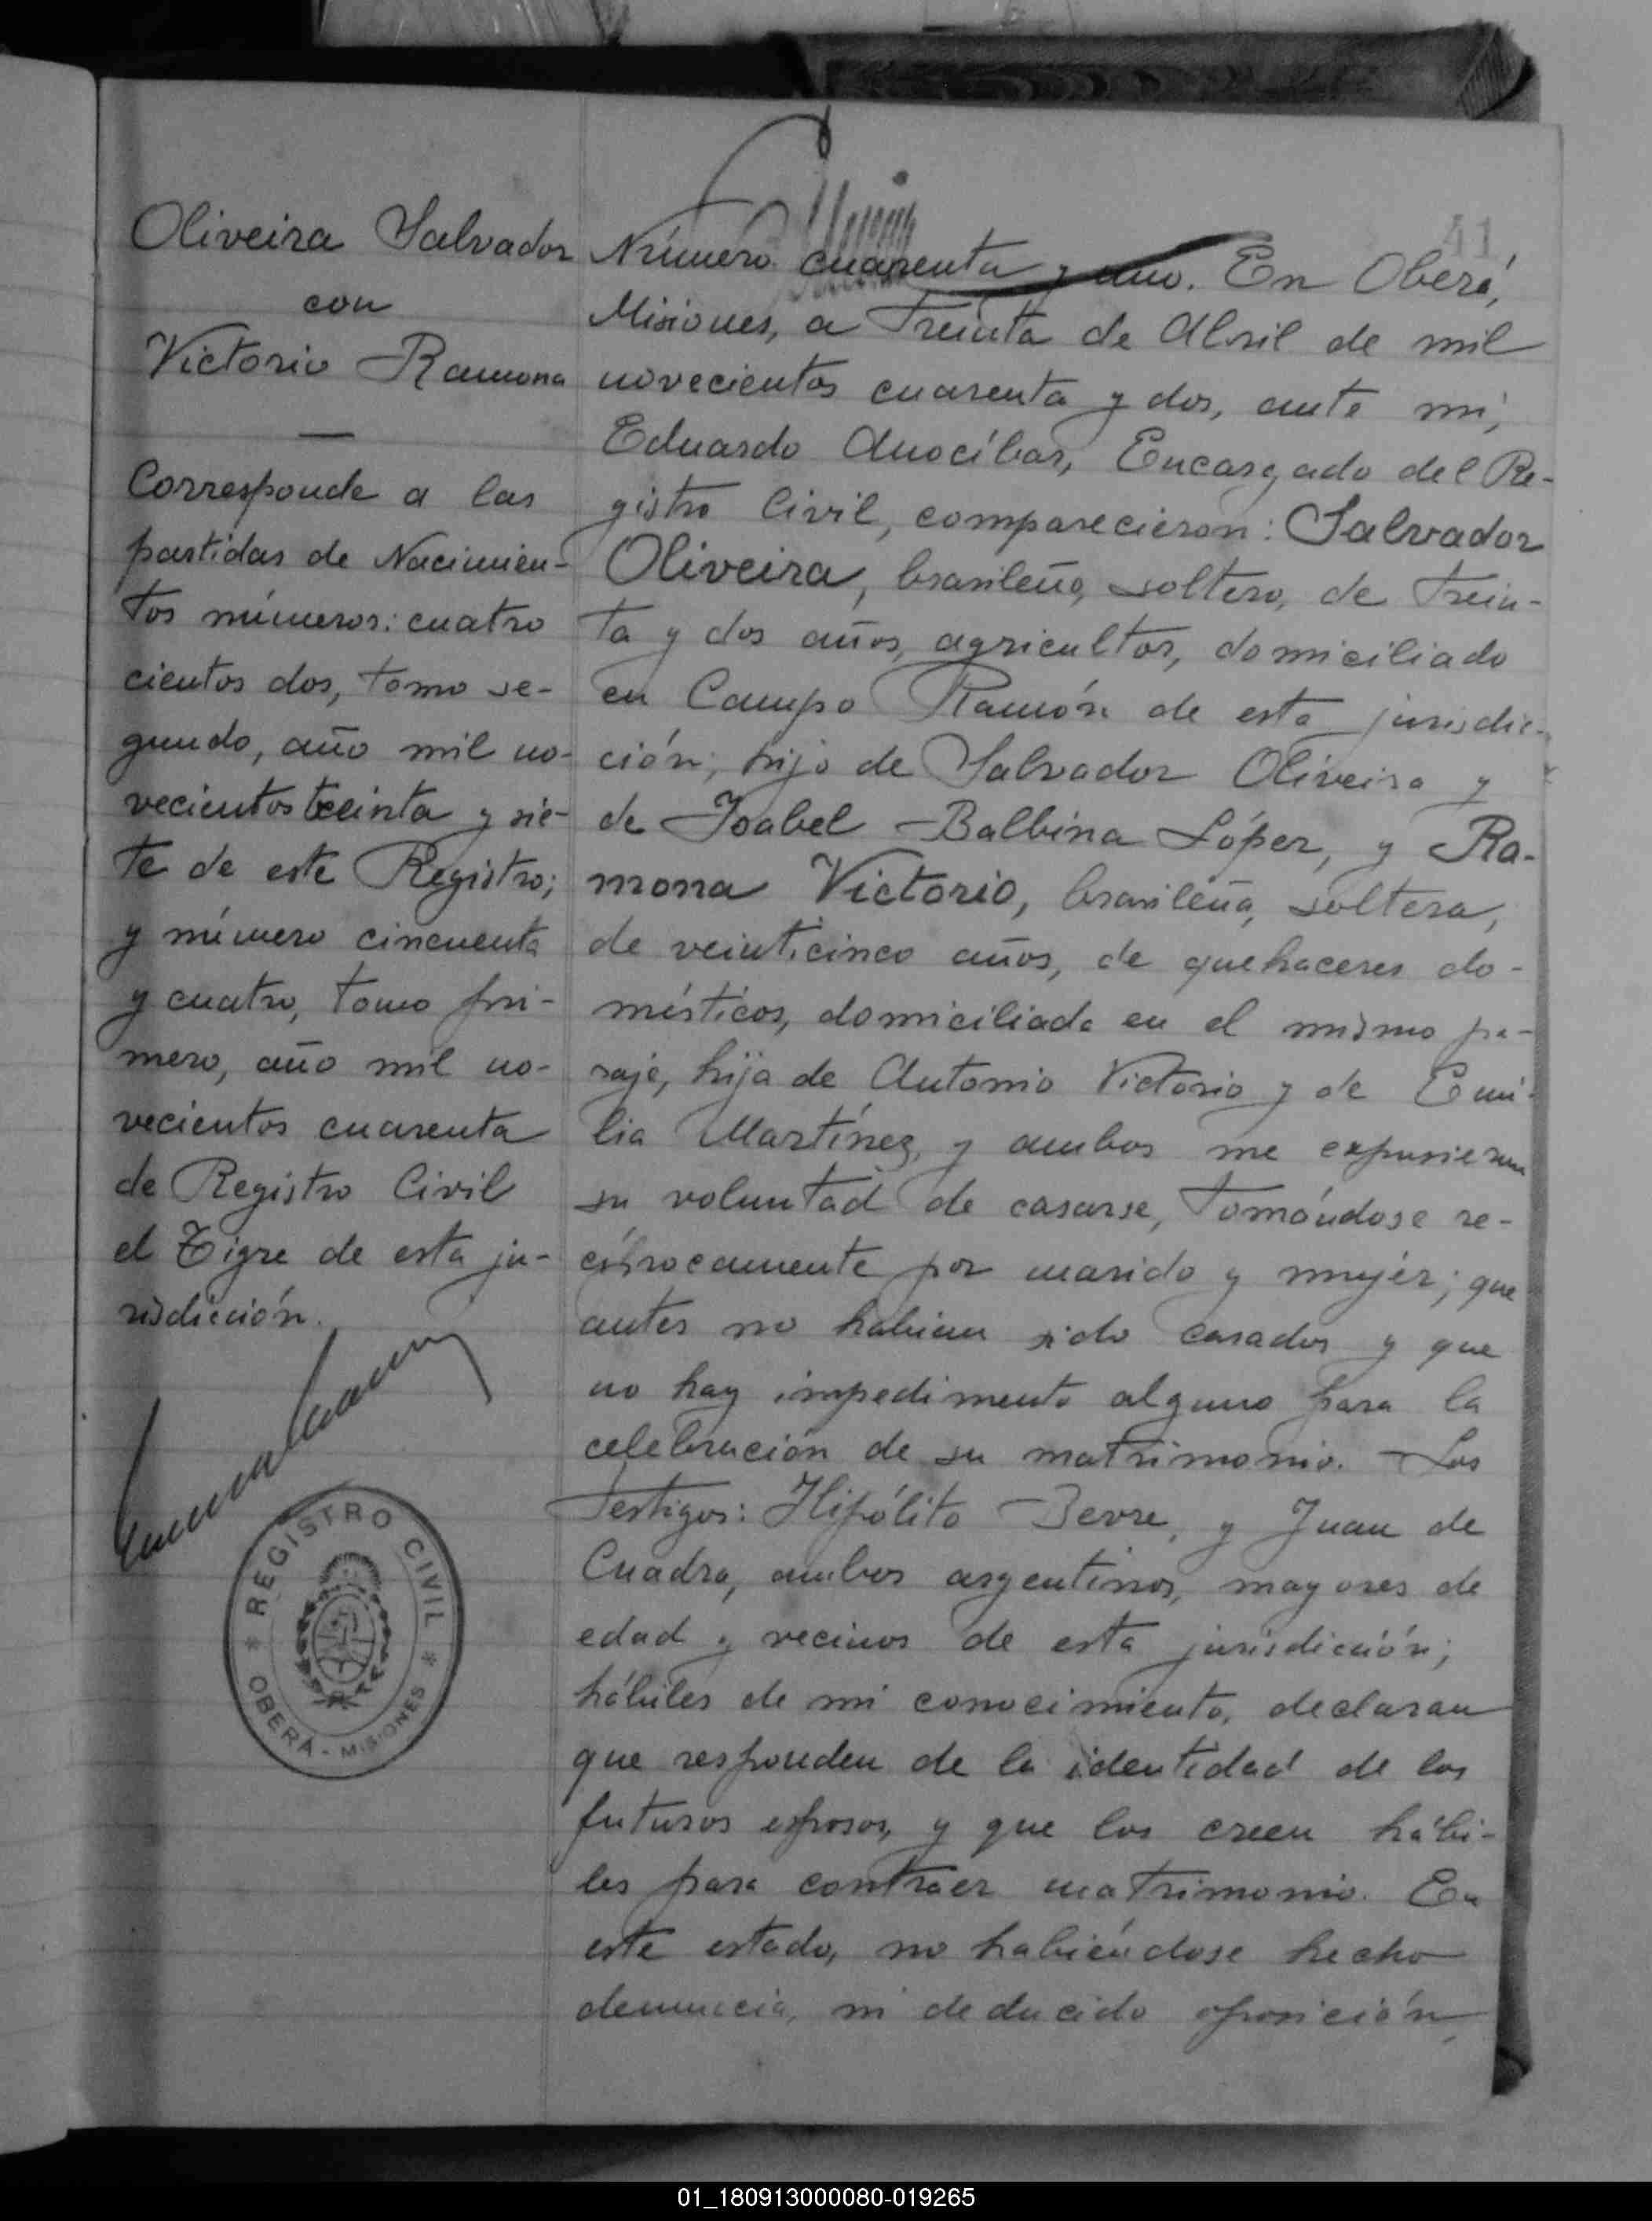 Oliveira Salvador
con
Victorio Ramona
Corresponde a las
partidas de Nacimien-
tos números: cuatro
cientos dos, tomo se-
gundo, año mil no-
vecientos treinta y sie-
te de este Registro;
y número cincuenta
y cuatro, tomo pri-
mero, año mil no-
vecientos cuarenta
de Registro Civil
el Tigre de esta ju-
risdicción.
REGISTRO CIVIL
OBERÁ - MISIONES
41
Número cuarenta y uno. En Oberá,
Misiones, a Treinta de Abril de mil
novecientos cuarenta y dos, ante mí,
Eduardo Anocíbar, Encargado del Re-
gistro Civil, comparecieron: Salvador
Oliveira, brasileño, soltero, de trein-
ta y dos años, agricultor, domiciliado
en Campo Ramón de esta jurisdic-
ción, hijo de Salvador Oliveira y
de Isabel Balbina López, y Ra-
mona Victorio, brasileña, soltera,
de veinticinco años, de quehaceres do-
mésticos, domiciliada en el mismo pa-
raje, hija de Antonio Victorio y de Emi-
lia Martínez, y ambos me expusieron
su voluntad de casarse, tomándose re-
cíprocamente por marido y mujer; que
antes no habian sido casados y que
no hay impedimento alguno para la
celebración de su matrimonio. Los
Testigos: Hipólito Berre, y Juan de
Cuadra, ambos argentinos, mayores de
edad y vecinos de esta jurisdicción;
hábiles de mi conocimiento, declaran
que responden de la identidad de los
futuros esposos, y que los creen hábi-
les para contraer matrimonio. En
este estado, no habiéndose hecho
denuncia, ni deducido oposición,
01_180913000080-019265